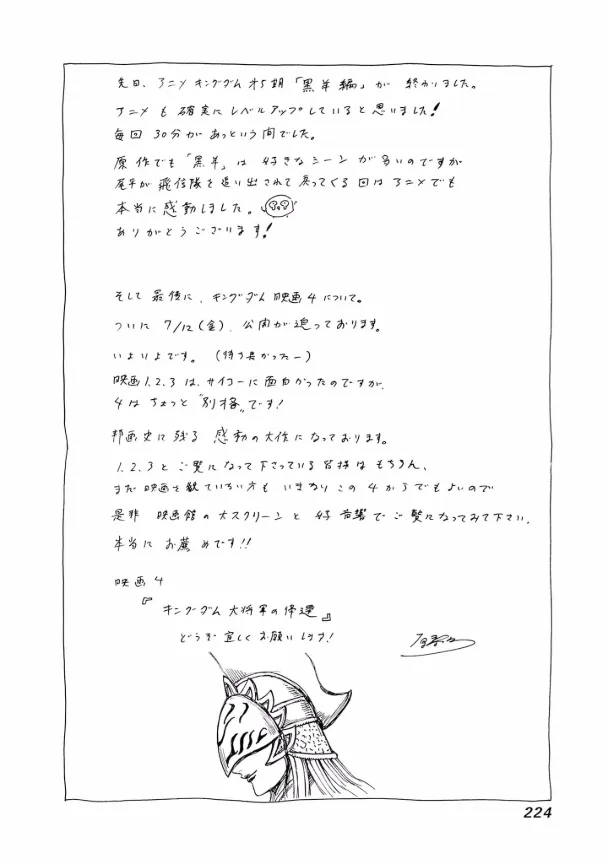 先日、アニメ キングダム オ5期「黒羊編」が 終わりました。
アニメも 確実に レベルアップしていると思いました!
毎回 30分が あっという間でした。
原作でも「黒羊」は 好きなシーン が多いのですが
尾平が 飛信隊を追い出されて 戻ってくる 回は アニメでも
本当に 感動しました。
ありがとうございます!
そして 最後に、キングダム 映画4 について。
ついに 7/12(金)、公開が迫っております。
いよいよです。(待ち長かったー)
映画1.2.3は、サイコーに面白かったのですが、
4は ちょっと "別格" です!
邦画史に残る 感動の大作になっております。
1.2.3と ご覧になって下さっている皆様は もちろん、
まだ 映画を観ていない方も いきなり この 4からでもよいので
是非 映画館の大スクリーンと 好音響で ご覧になってみて下さい。
本当に お薦めです!!
映画4
『キングダム 大将軍の帰還』
どうぞ 宜しくお願いします!
224